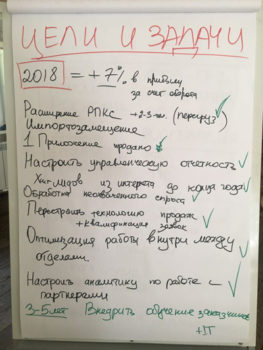 ЦЕЛИ И ЗАДАЧИ
2018 = + 7% в прибыли
за счет оборота
Расширение РПКС +2-3 чел. (перегруз)
Импортозамещение
1 Приложение продано
Настроить управленческую отчетность
из интернета до конца года
Обработка неохваченного спроса
Перестроить технологию продаж
+ квалификация заявок
Оптимизация работы внутри между
отделами
Настроить аналитику по работе с
партнерами
3-5 лет Внедрить обучение заказчиков
+IT